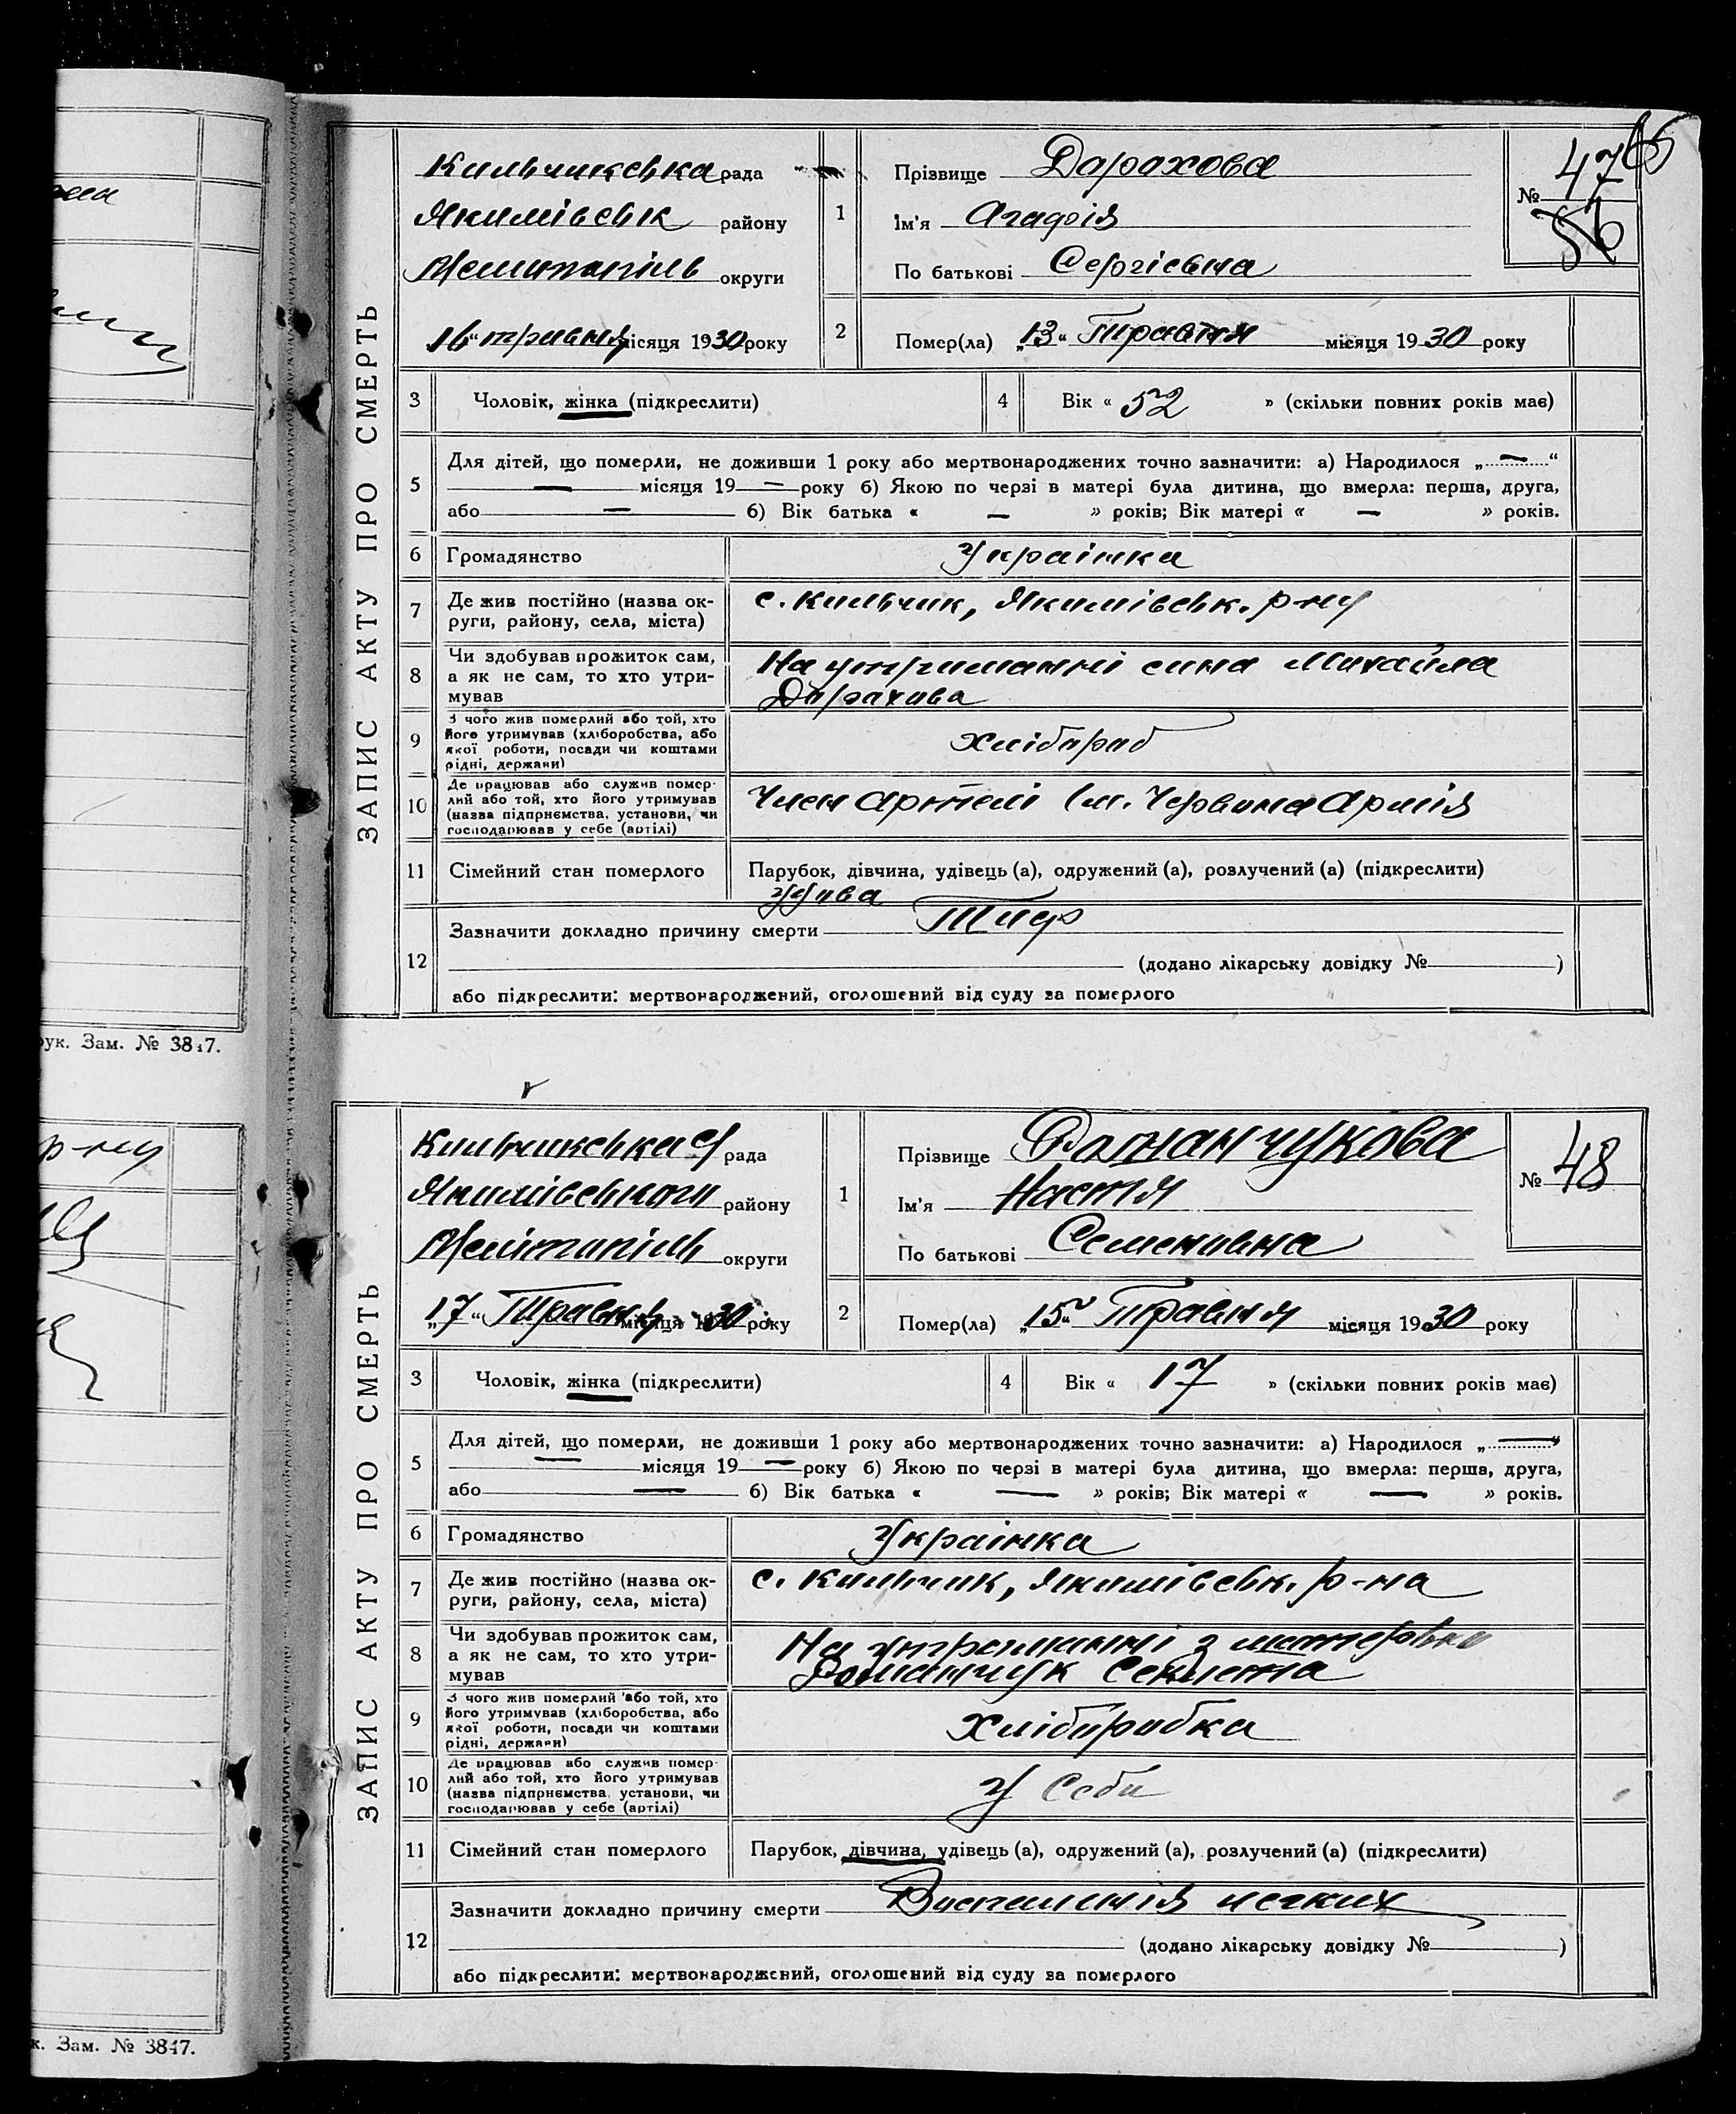 ЗАПИС АКТУ ПРО СМЕРТЬ
Кильчикська рада
Якимівськ району
Мелитопіль округи
„16“ травня місяця 1930 року
1
Прізвище Дарахова
Ім'я Агафія
По батькові Сергієвна
№ 47
56
2
Помер(ла) „13“ Травня місяця 1930 року
3 Чоловік, жінка (підкреслити)
4 Вік « 52 » (скільки повних років має)
5 Для дітей, що померли, не доживши 1 року або мертвонароджених точно зазначити: а) Народилося „ — “
— місяця 19 — року б) Якою по черзі в матері була дитина, що вмерла: перша, друга,
або — б) Вік батька « — » років; Вік матері « — » років.
6 Громадянство Українка
7 Де жив постійно (назва округи, району, села, міста) с. Кильчик, Якимівськ. р-ну
8 Чи здобував прожиток сам,
а як не сам, то хто утри-
мував
На утриманні сина Михайла
Дарахова
9 З чого жив померлий або той, хто
його утримував (хліборобства, або
якої роботи, посади чи коштами
рідні, держави)
Хлібороб
10 Де працював або служив помер-
лий або той, хто його утримував
(назва підприємства, установи, чи
господарював у себе (артілі)
Член Артелі Ім. Червона Армія
11 Сімейний стан померлого Парубок, дівчина, удівець (а), одружений (а), розлучений (а) (підкреслити)
Удова
12 Зазначити докладно причину смерти Тиф
(додано лікарську довідку № )
або підкреслити: мертвонароджений, оголошений від суду за померлого
рук. Зам. № 3847.
ЗАПИС АКТУ ПРО СМЕРТЬ
Кильчикська с/рада
Якимівського району
Мелітопіль округи
„17“ Травня місяця 1930 року
1
Прізвище Романчукова
Ім'я Настя
По батькові Семеновна
№ 48
2
Помер(ла) „15“ Травня місяця 1930 року
3 Чоловік, жінка (підкреслити)
4 Вік « 17 » (скільки повних років має)
5 Для дітей, що померли, не доживши 1 року або мертвонароджених точно зазначити: а) Народилося „ — “
— місяця 19 — року б) Якою по черзі в матері була дитина, що вмерла: перша, друга,
або — б) Вік батька « — » років; Вік матері « — » років.
6 Громадянство Українка
7 Де жив постійно (назва округи, району, села, міста) с. Кильчик, Якимівськ. р-на
8 Чи здобував прожиток сам,
а як не сам, то хто утри-
мував
На утриманні з матерью
Романчук
9 З чого жив померлий або той, хто
його утримував (хліборобства, або
якої роботи, посади чи коштами
рідні, держави)
Хліборобка
10 Де працював або служив помер-
лий або той, хто його утримував
(назва підприємства, установи, чи
господарював у себе (артілі)
У Себе
11 Сімейний стан померлого Парубок, дівчина, удівець (а), одружений (а), розлучений (а) (підкреслити)
12 Зазначити докладно причину смерти Воспаленія легких
(додано лікарську довідку № )
або підкреслити: мертвонароджений, оголошений від суду за померлого
р-ну
к. Зам. № 3847.